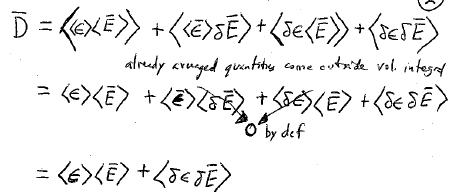 D̄ = ⟨⟨ϵ⟩⟨Ē⟩⟩ + ⟨⟨ϵ⟩δĒ⟩ + ⟨δϵ⟨Ē⟩⟩ + ⟨δϵδĒ⟩
already averaged quantities come outside vol. integral
= ⟨ϵ⟩⟨Ē⟩ + ⟨ϵ⟩⟨δĒ⟩ + ⟨δϵ⟩⟨Ē⟩ + ⟨δϵ δĒ⟩
0 by def
= ⟨ϵ⟩⟨Ē⟩ + ⟨δϵ δĒ⟩